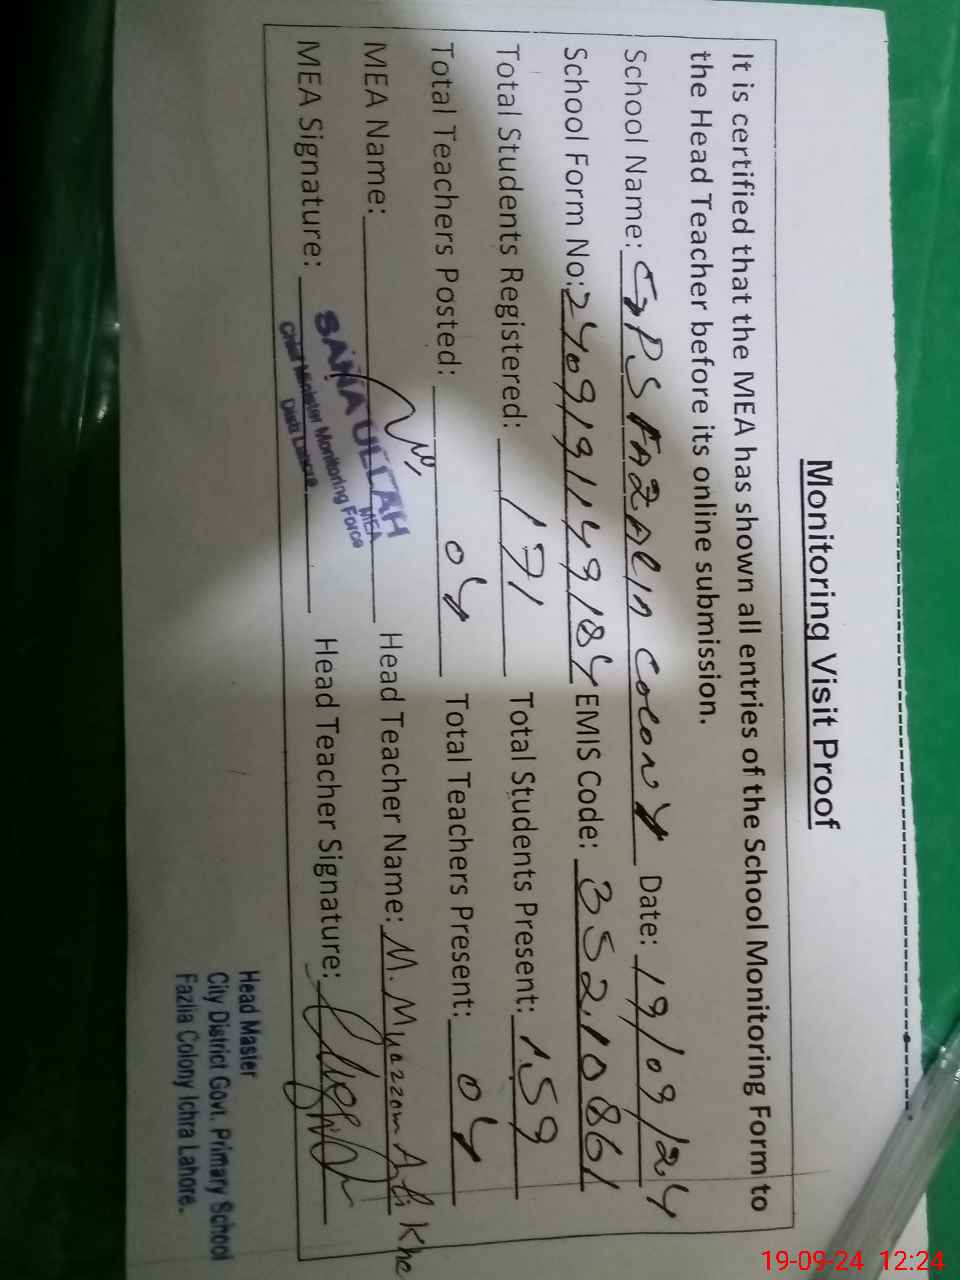 Monitoring Visit Proof
It is certified that the MEA has shown all entries of the School Monitoring Form to
the Head Teacher before its online submission.
School Name: GPS FAZALIA COLONY Date: 19/09/24
School Form No: 2409191149184 EMIS Code: 35210861
Total Students Registered: 171 Total Students Present: 159
Total Teachers Posted: 04 Total Teachers Present: 04
MEA Name: Head Teacher Name: M. Muazzam Ali Kha
MEA Signature: Head Teacher Signature:
SANA ULLAH
MEA
Chief Minister Monitoring Force
Distt: Lahore
Head Master
City District Govt. Primary School
Fazlia Colony Ichra Lahore.
19-09-24 12:24